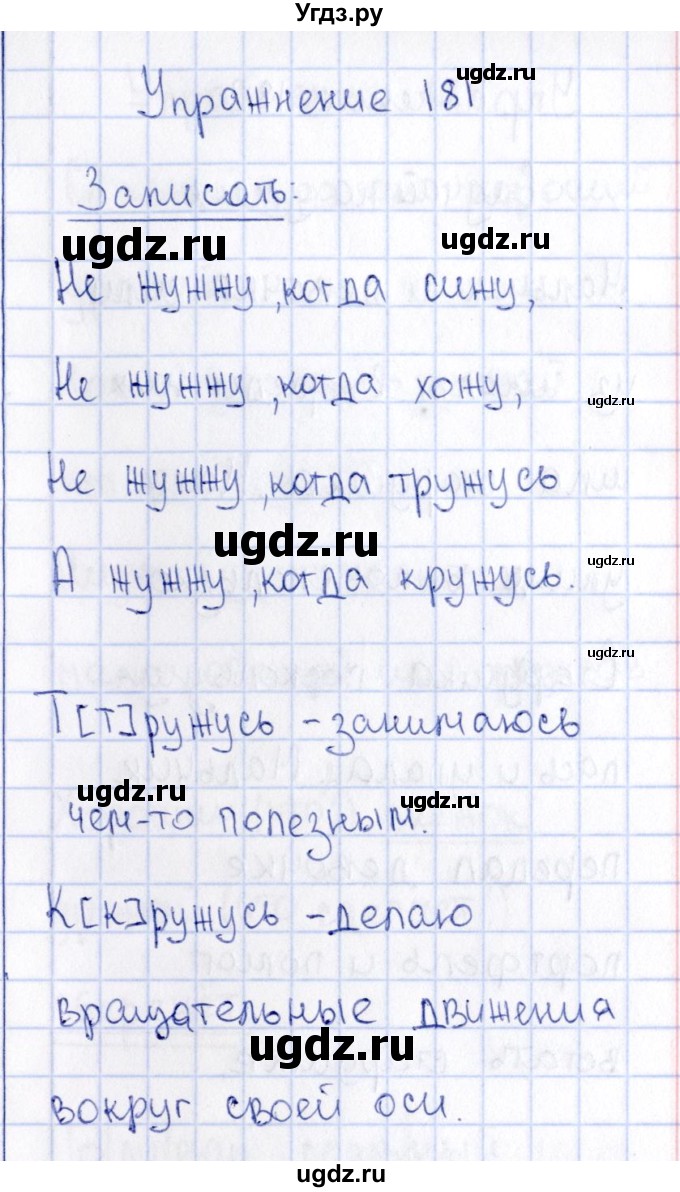 Угдз.ру
ugdz.ru
Упражнение 181
Записать:
ugdz.ru
ugdz.ru
Не жужжу, когда сижу,
Не жужжу, когда хожу,
ugdz.ru
Не жужжу, когда тружусь
ugdz.ru
ugdz.ru
А жужжу, когда кружусь.
ugdz.ru
Т[т]ружусь - занимаюсь
ugdz.ru
ugdz.ru
чем-то полезным.
К[к]ружусь - делаю
вращательные движения
ugdz.ru
вокруг своей оси.
ugdz.ru